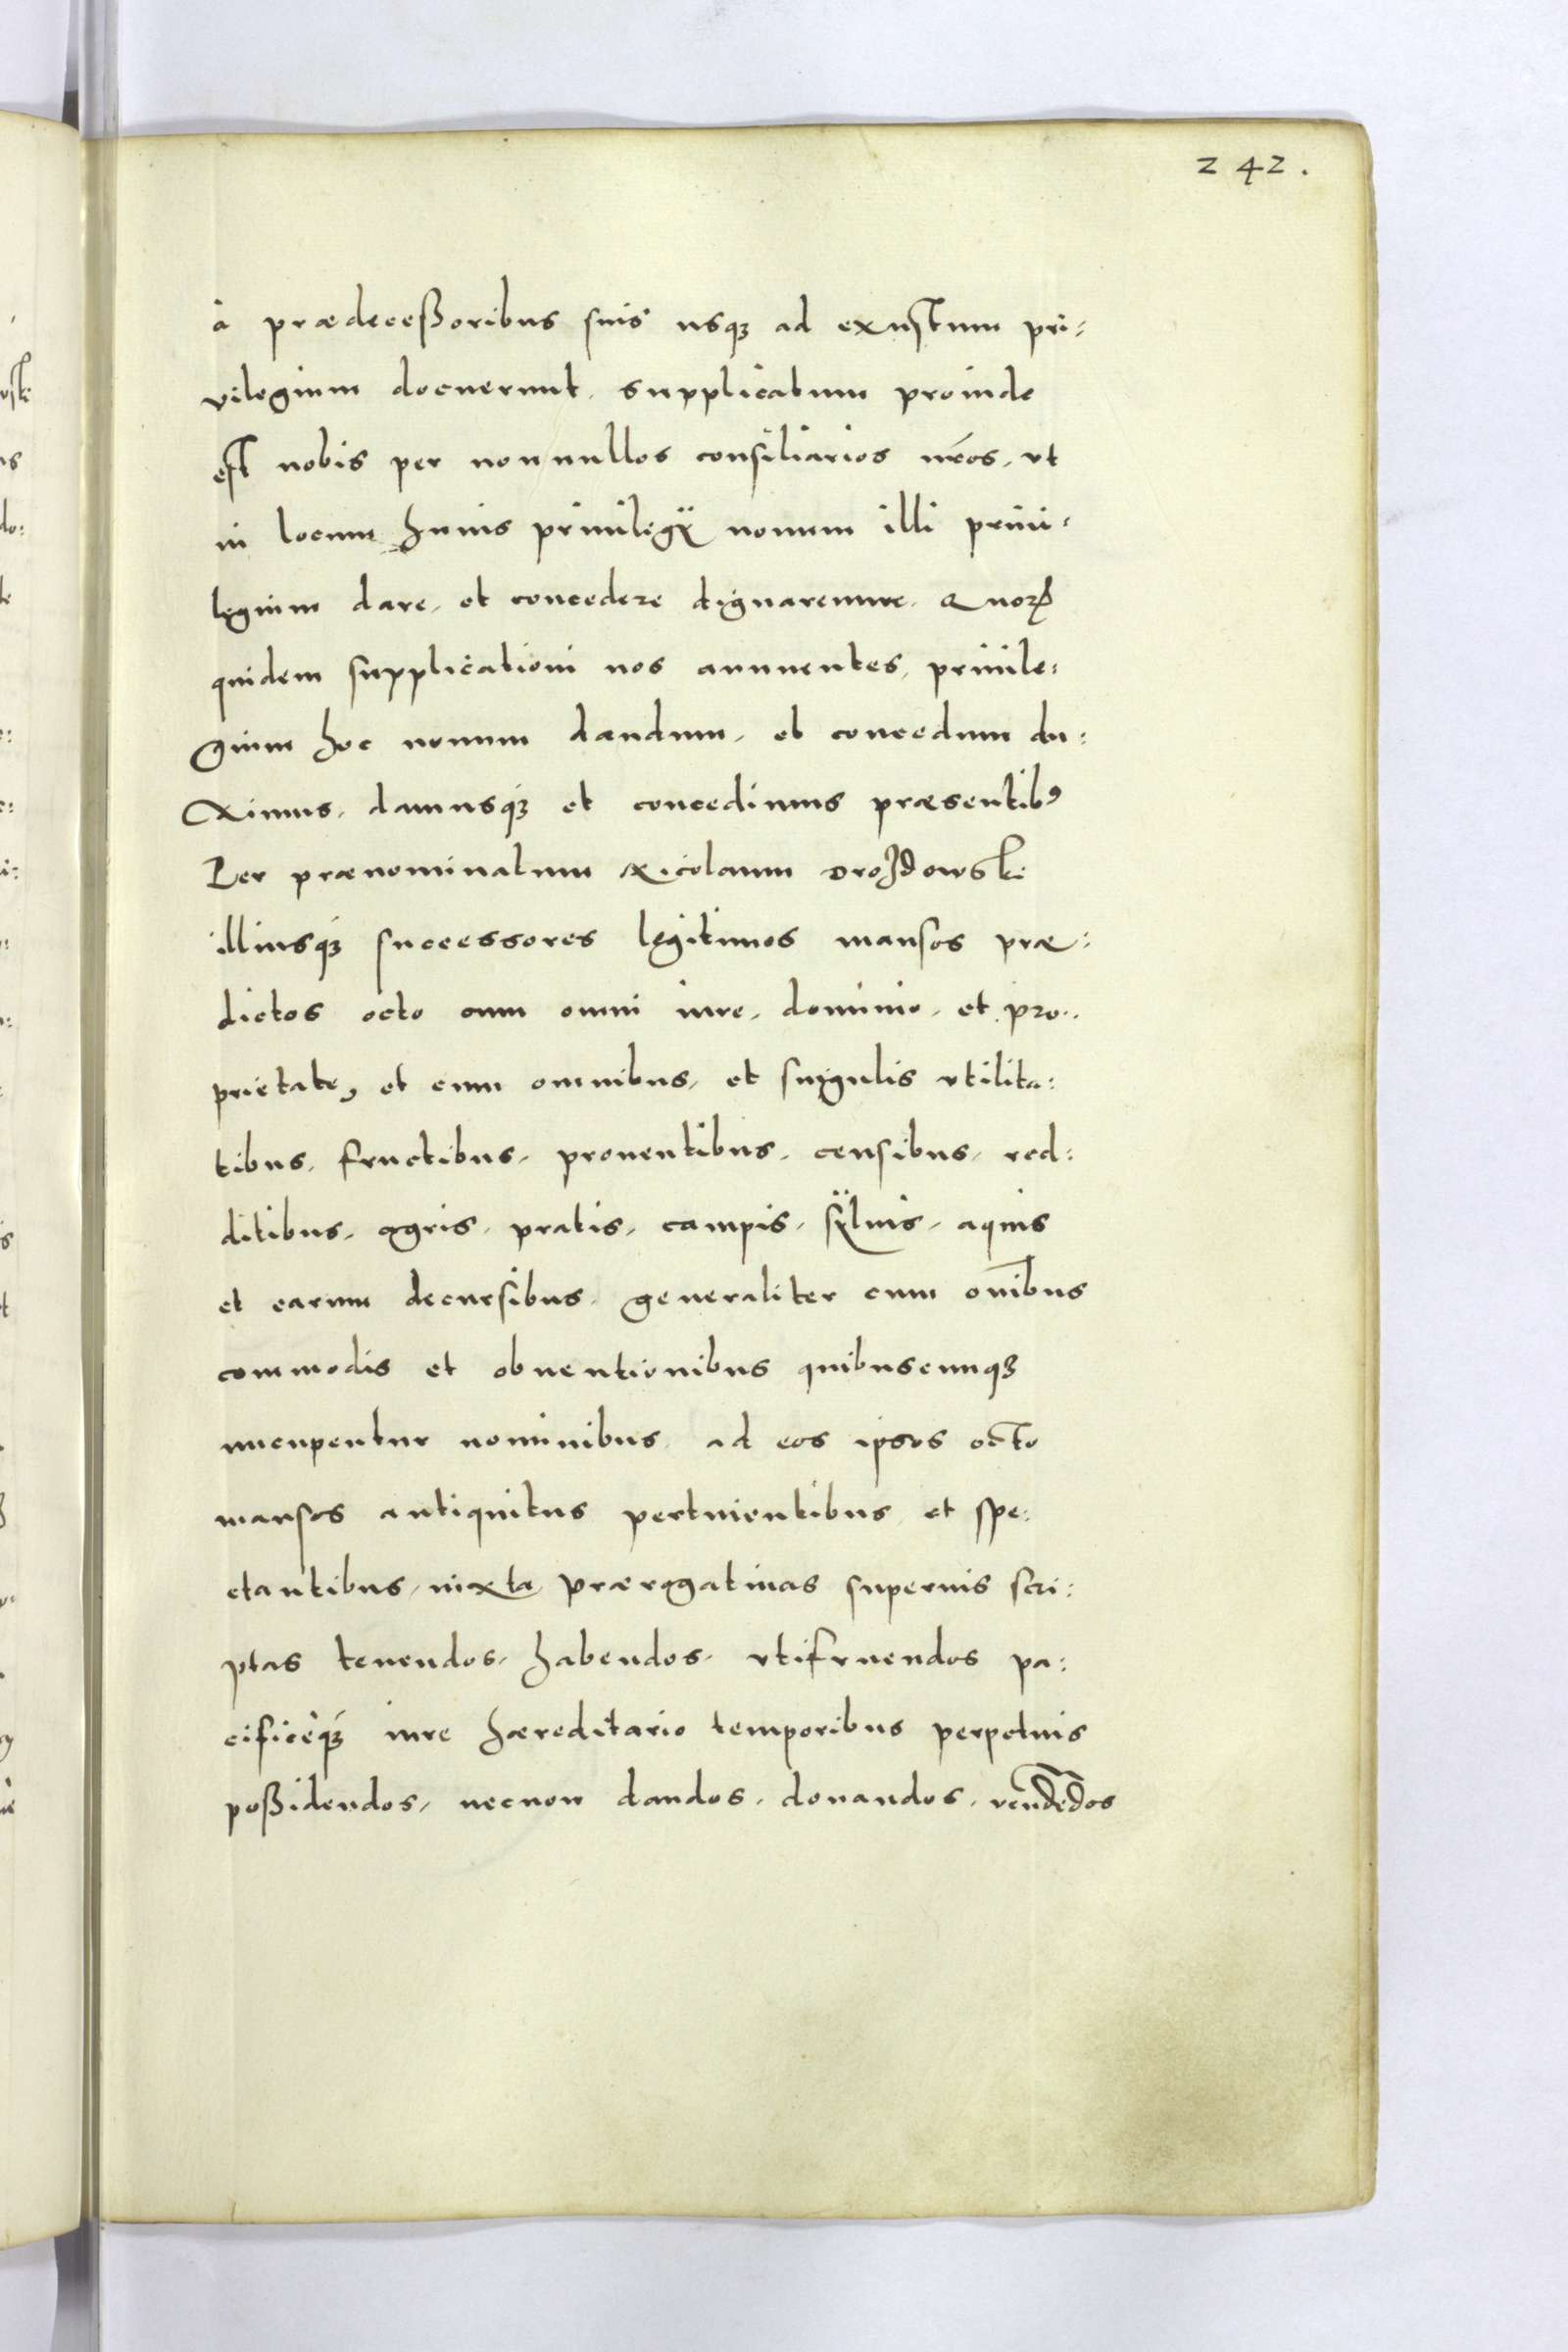 242.
à prædeceßoribus suis usq; ad exustum pri:
vilegium docuerunt, supplicatum proinde
est nobis per nonnullos consiliarios nr̃os, vt
in locum huius priuilegÿ nouum illi priui:
legium dare, et concedere dignaremur. Quorꝝ
quidem supplicationi nos annuentes, priuile:
gium hoc nouum dandum, et concedum du:
ximus, damusq; et concedimus præsentibꝰ
Per prænominatum Nicolaum Drozdowski
illiusq; successores legitimos mansos præ:
dictos octo cum omni iure, dominio, et pro:
prietate, et cum omnibus, et singulis vtilita:
tibus, fructibus, prouentibus, censibus, red:
ditibus, agris, pratis, campis, sÿluis, aquis
et earum decursibus, generaliter cum om̃ibus
commodis et obuentionibus quibuscunq;
nucupentur nominibus, ad eos ipsos octo
mansos antiquitus pertinentibus, et spe:
ctantibus, iuxta prærogatiuas superius scri:
ptas tenendos, habendos, vtifruendos pa:
cificèq; iure hæreditario temporibus perpetuis
poßidendos, necnon dandos, donandos, vendēdos